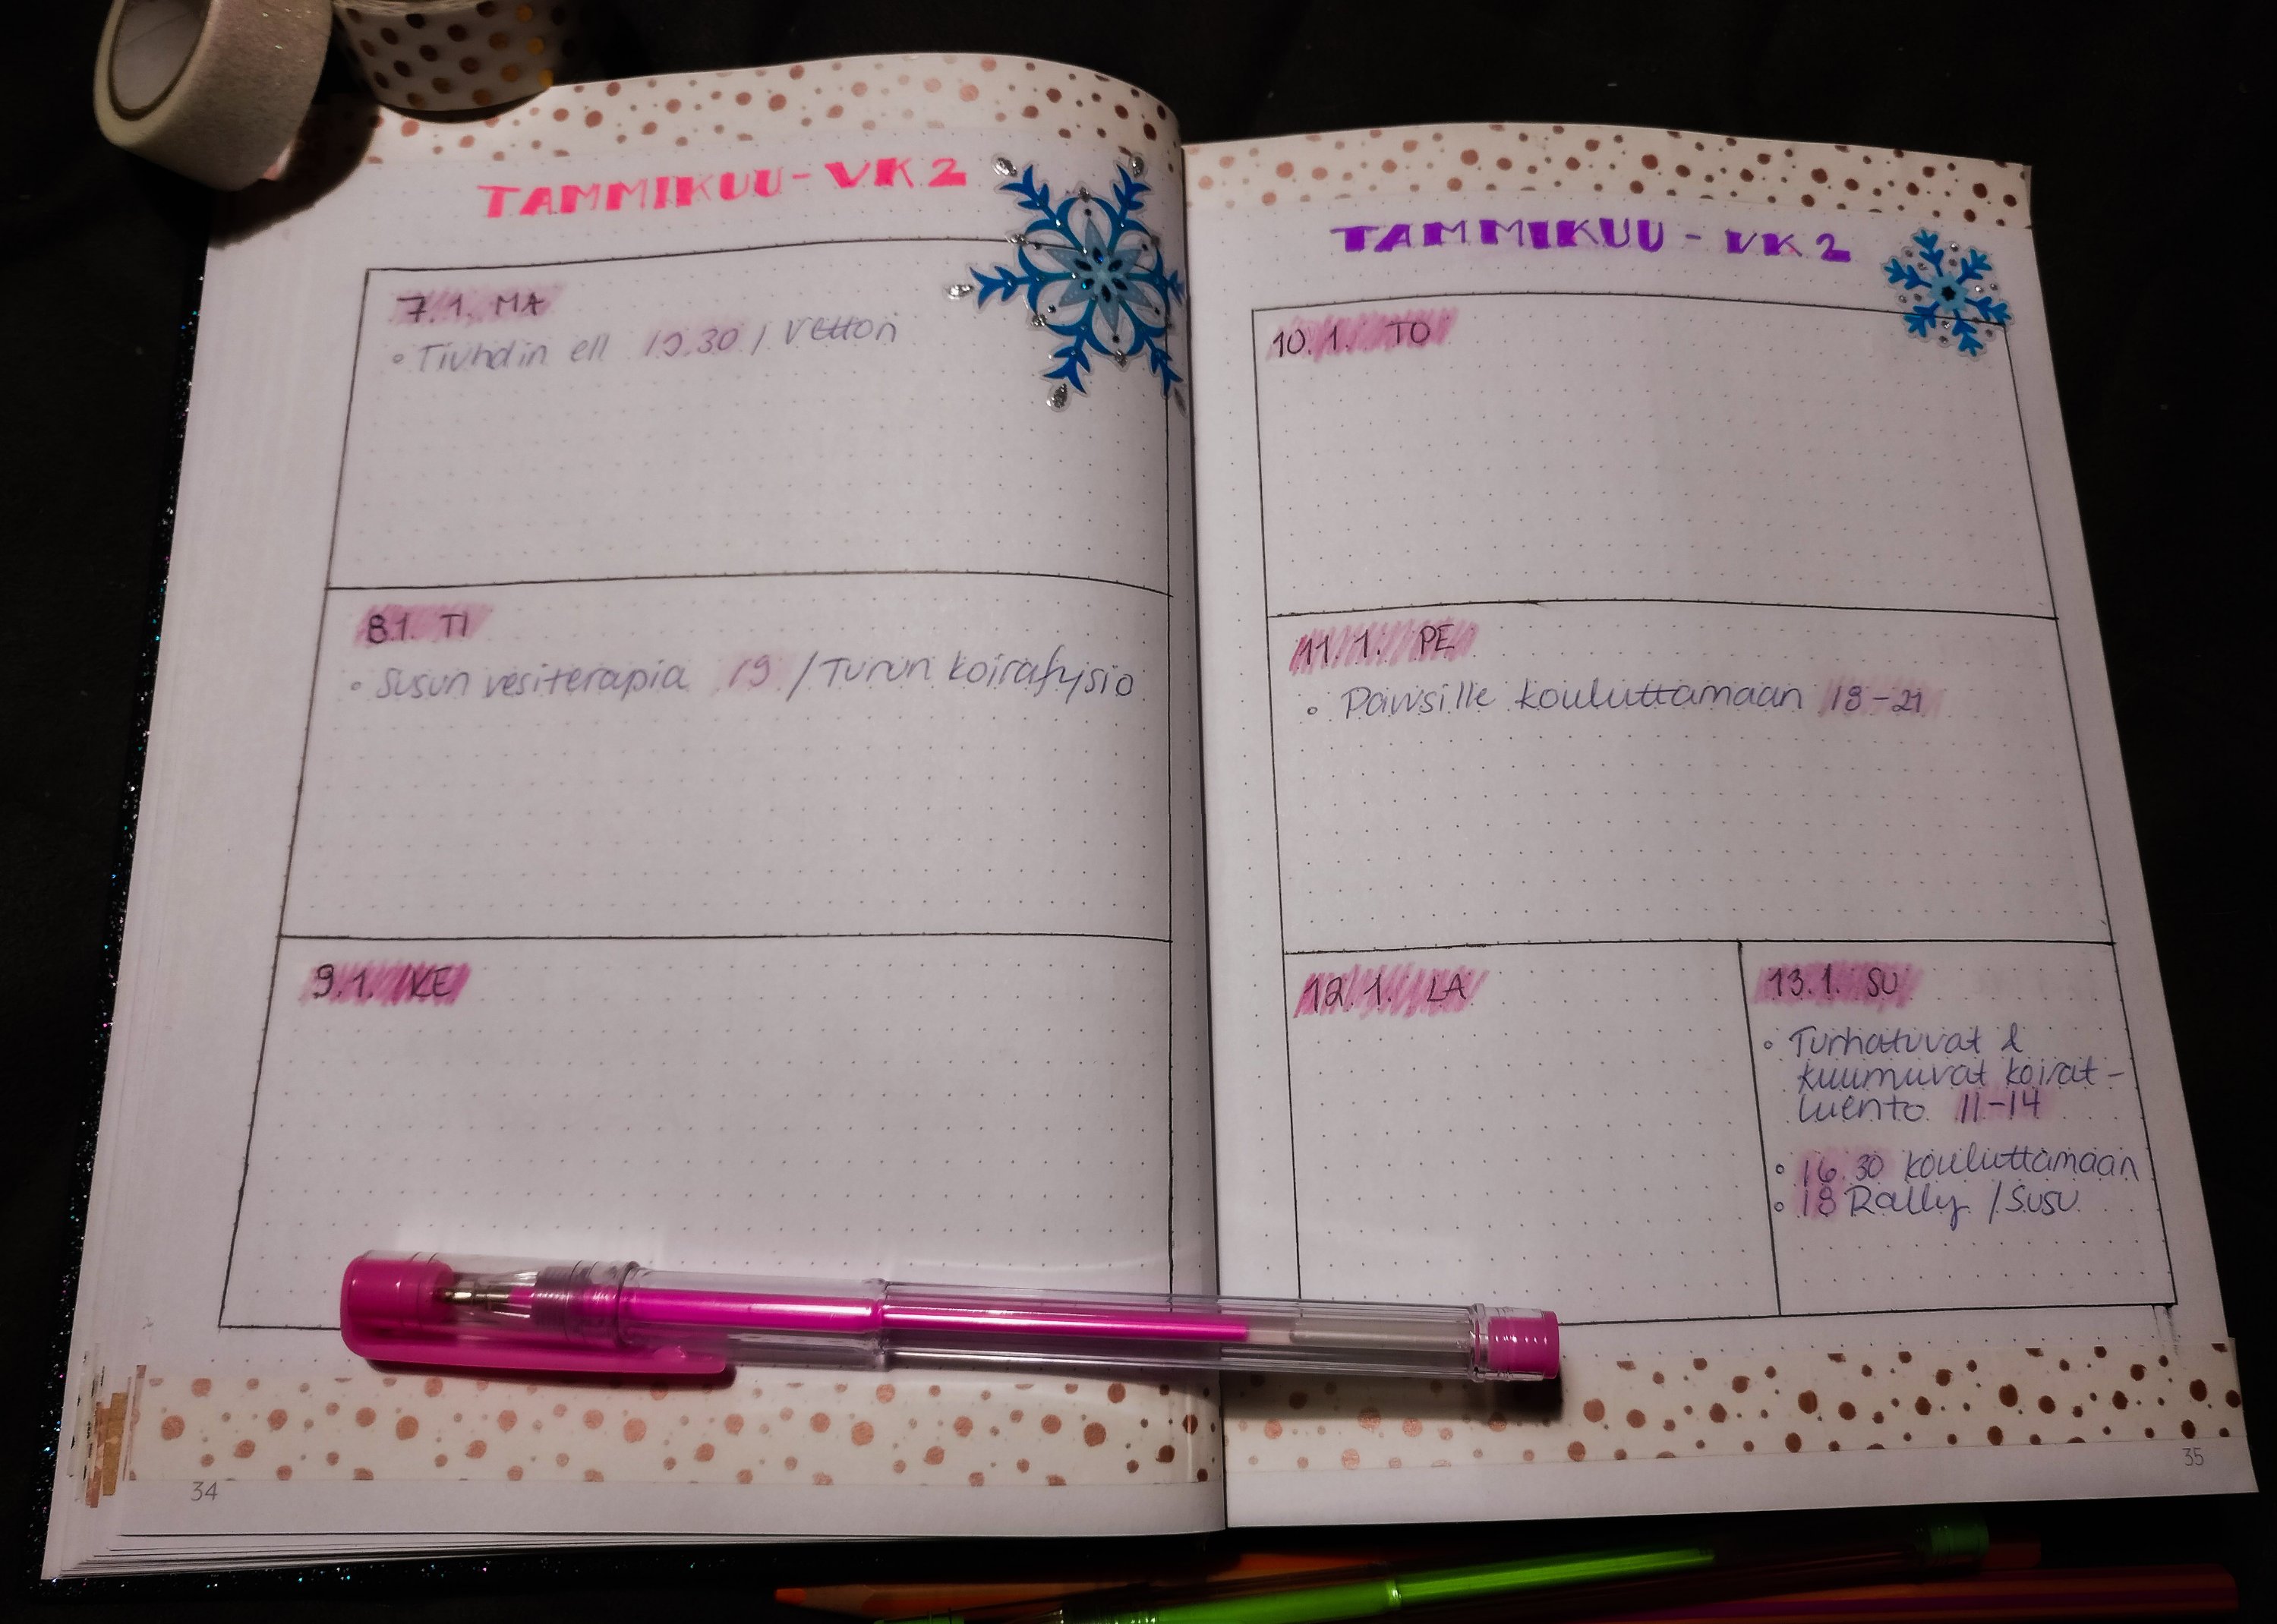 TAMMIKUU - VK 2
7.1. MA
Tiuhdin ell 19.30 / Vettori
8.1. TI
Susun vesiterapia 19 / Turun koirafysio
9.1. KE
34
TAMMIKUU - VK 2
10.1. TO
11.1. PE
Pawsille kouluttamaan 18-21
12.1. LA
13.1. SU
Turhatuvat &
kuumuvat koirat -
luento 11-14
16.30 kouluttamaan
18 Rally / Susu
35